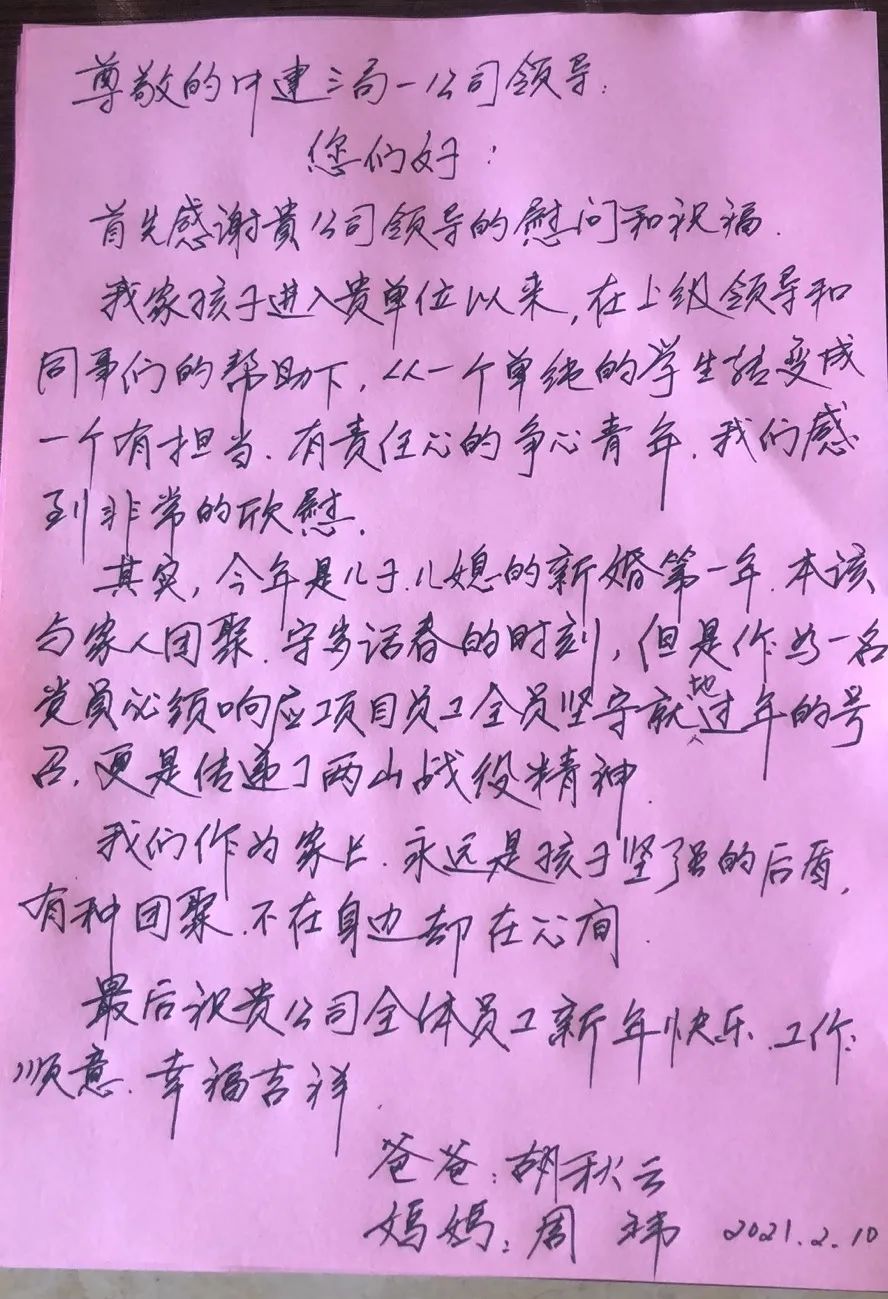 尊敬的中建三局一公司领导:
您们好:
首先感谢贵公司领导的慰问和祝福.
我家孩子进入贵单位以来,在上级领导和
同事们的帮助下,从一个单纯的学生转变成
一个有担当.有责任心的争心青年.我们感
到非常的欣慰.
其实,今年是儿子.儿媳的新婚第一年.本该
与家人团聚.守岁话春的时刻,但是作为一名
党员必须响应项目员工全员坚守就地过年的号
召.更是传递了两山战役精神.
我们作为家长.永远是孩子坚强的后盾,
有种团聚.不在身边却在心间.
最后祝贵公司全体员工新年快乐.工作
顺意.幸福吉祥.
爸爸:胡秋云
妈妈:周祎 2021.2.10